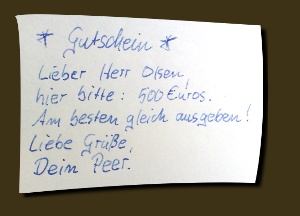 * Gutschein *
Lieber Herr Olsen,
hier bitte: 500 Euros.
Am besten gleich ausgeben!
Liebe Grüße,
Dein Peer.